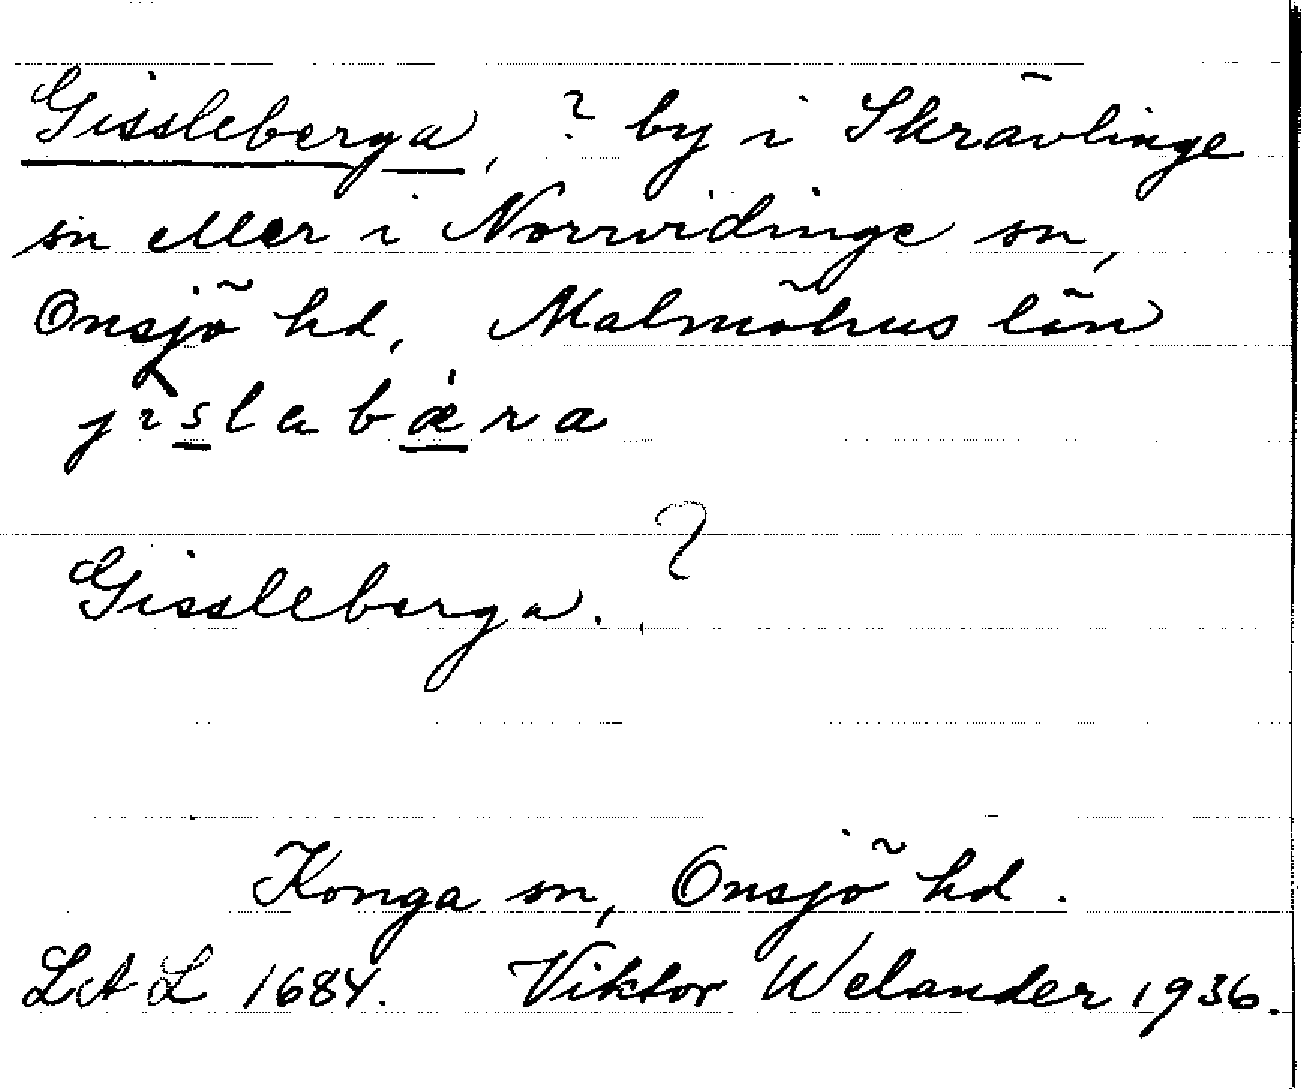 Gissleberga, ? by i Skrävlinge
sn eller i Norrvidinge sn,
Onsjö hd, Malmöhus län
jislabæra
Gissleberga. ?
Konga sn, Onsjö hd.
LAL 1684. Viktor Welander 1936.